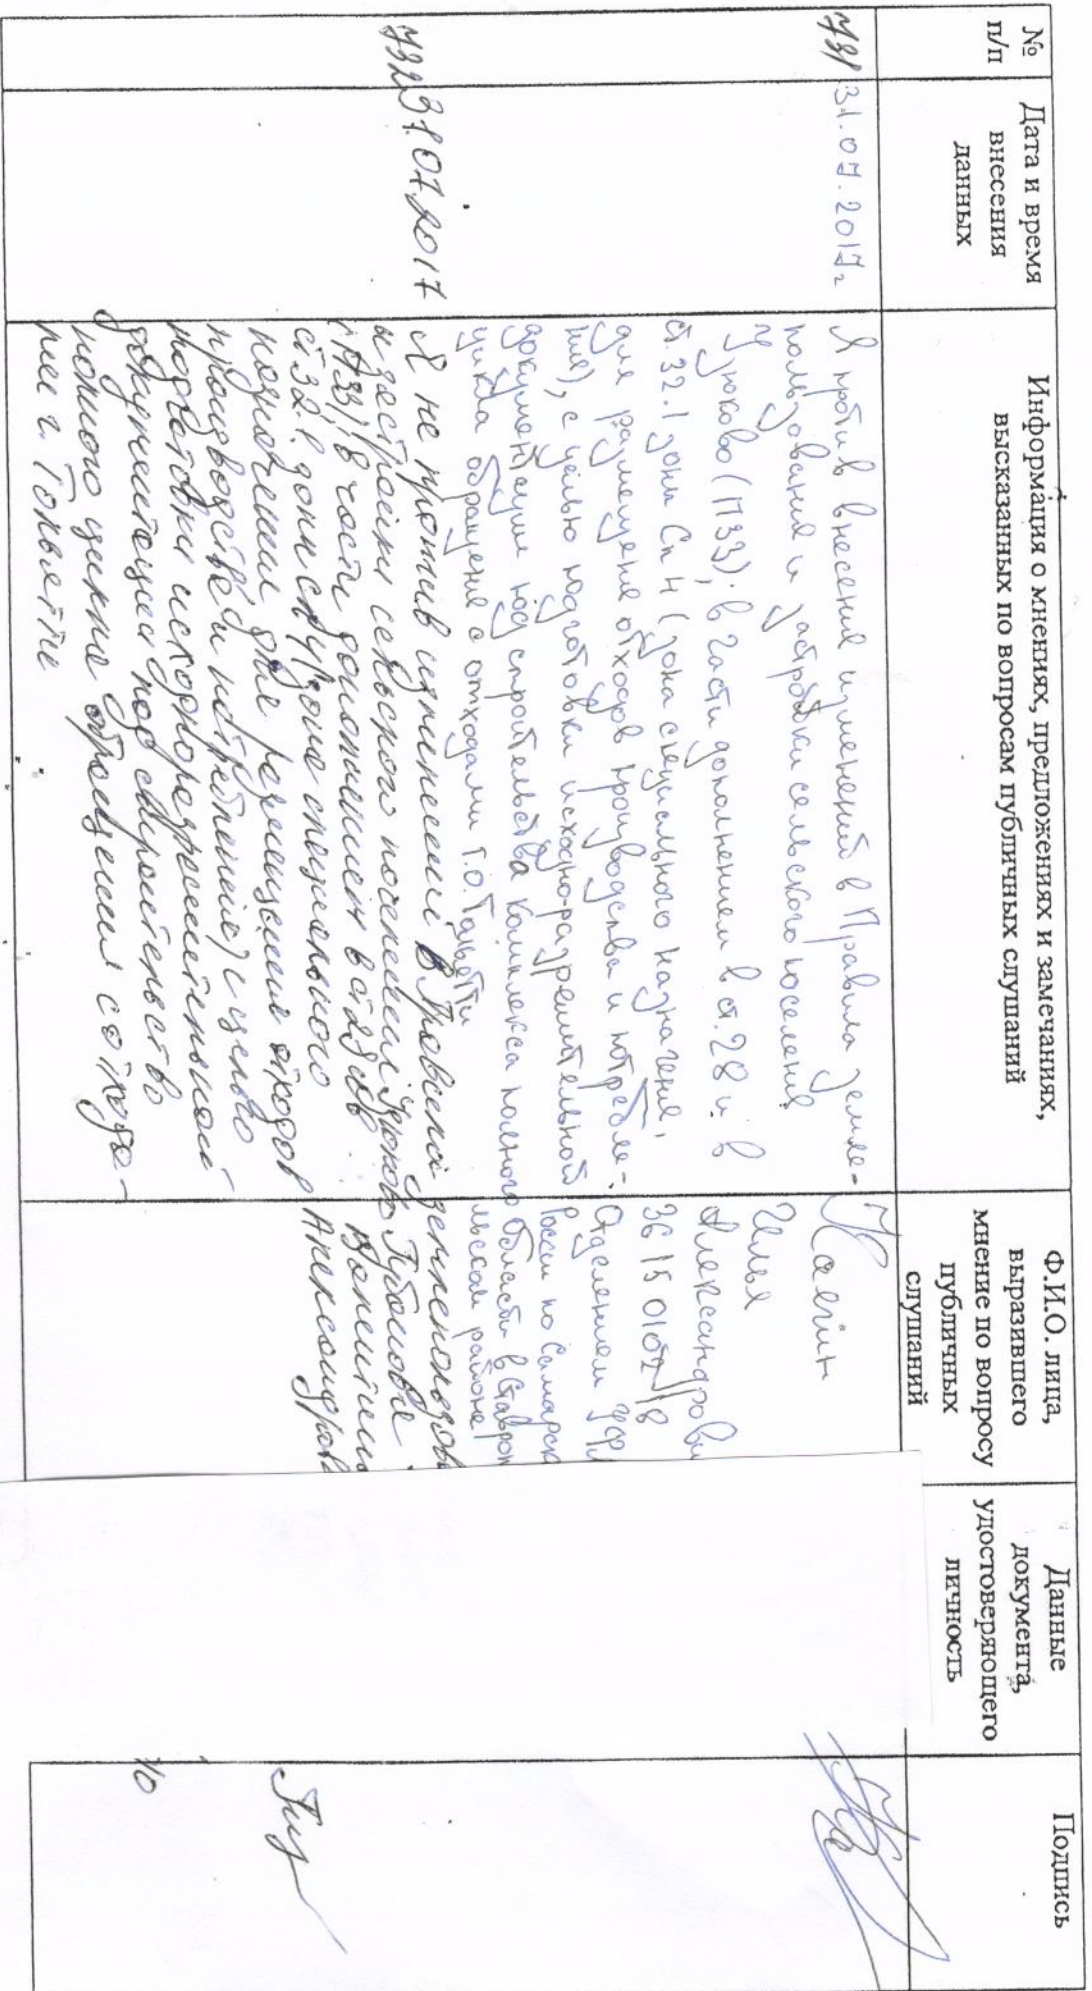 №
п/п
Дата и время
внесения
данных
Информация о мнениях, предложениях и замечаниях,
высказанных по вопросам публичных слушаний
Ф.И.О. лица,
выразившего
мнение по вопросу
публичных
слушаний
Данные
документа,
удостоверяющего
личность
Подпись
731
31.07.2017г
Я против внесения изменений в Правила земле-
пользования и застройки сельского поселения
Узюково (ПЗЗ), в части дополнением в ст. 28 и в
ст. 32.1 зоны Сп 4 (зона специального назначения,
для размещения отходов производства и потребле-
ния), с целью подготовки исходно-разрешительной
документации под строительства комплекса полного
цикла обращения с отходами г.о. Тольятти
Илья
Александрови
Отделением УФМ
России по Самарск
области в Ставроп
льском районе
732
31.07.2017
Я не против изменений в Правила землепользов
и застройки сельского поселения Узюково
(ПЗЗ), в части дополнением в ст 28
ст 32.1 зоны сп 4 (зона специального
назначения для размещения отходов
производства и потребления) с целью
подготовки исходноразрешительной
документации под строительство
полного цикла обращения с отхода-
ми г. Тольятти
Александров